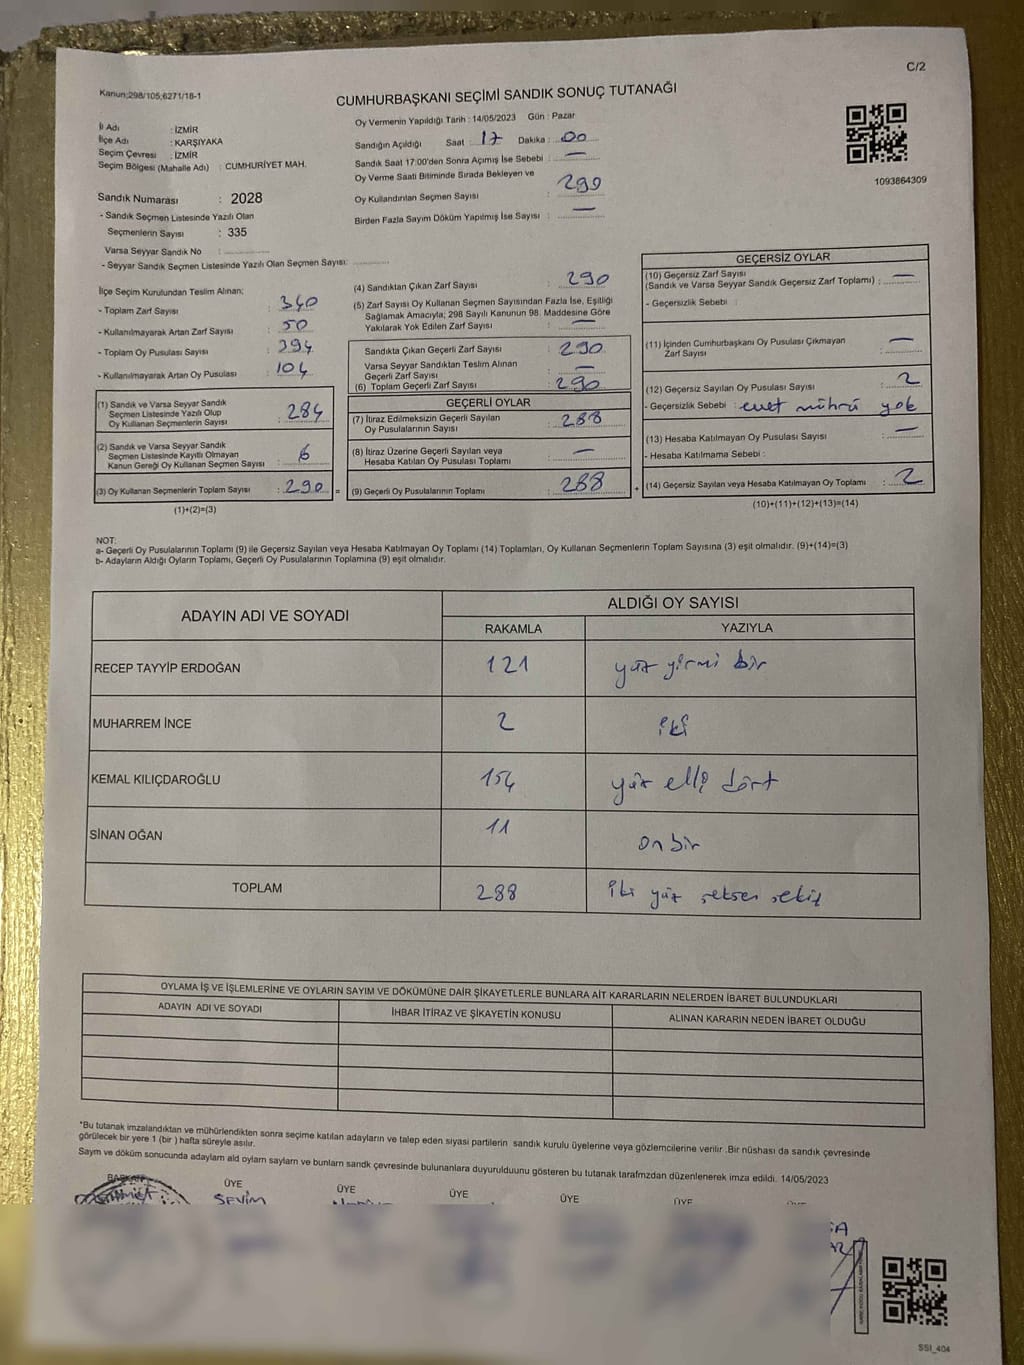 C/2
Kanun;298/105;6271/18-1
CUMHURBAŞKANI SEÇİMİ SANDIK SONUÇ TUTANAĞI
İl Adı : İZMİR
İlçe Adı : KARŞIYAKA
Seçim Çevresi : İZMİR
Seçim Bölgesi (Mahalle Adı) : CUMHURİYET MAH.
Sandık Numarası : 2028
- Sandık Seçmen Listesinde Yazılı Olan
Seçmenlerin Sayısı : 335
Varsa Seyyar Sandık No :
- Seyyar Sandık Seçmen Listesinde Yazılı Olan Seçmen Sayısı:
Oy Vermenin Yapıldığı Tarih : 14/05/2023 Gün : Pazar
Sandığın Açıldığı Saat : 17 Dakika : 00
Sandık Saat 17:00'den Sonra Açımış İse Sebebi : —
Oy Verme Saati Bitiminde Sırada Bekleyen ve
Oy Kullandırılan Seçmen Sayısı : 290
Birden Fazla Sayım Döküm Yapılmış İse Sayısı : —
1093864309
İlçe Seçim Kurulundan Teslim Alınan;
- Toplam Zarf Sayısı : 340
- Kullanılmayarak Artan Zarf Sayısı : 50
- Toplam Oy Pusulası Sayısı : 394
- Kullanılmayarak Artan Oy Pusulası : 104
(1) Sandık ve Varsa Seyyar Sandık
Seçmen Listesinde Yazılı Olup
Oy Kullanan Seçmenlerin Sayısı : 284
(2) Sandık ve Varsa Seyyar Sandık
Seçmen Listesinde Kayıtlı Olmayan
Kanun Gereği Oy Kullanan Seçmen Sayısı : 6
(3) Oy Kullanan Seçmenlerin Toplam Sayısı : 290 =
(1)+(2)=(3)
(4) Sandıktan Çıkan Zarf Sayısı : 290
(5) Zarf Sayısı Oy Kullanan Seçmen Sayısından Fazla İse, Eşitliği
Sağlamak Amacıyla; 298 Sayılı Kanunun 98. Maddesine Göre
Yakılarak Yok Edilen Zarf Sayısı : —
Sandıkta Çıkan Geçerli Zarf Sayısı : 290
Varsa Seyyar Sandıktan Teslim Alınan
Geçerli Zarf Sayısı : —
(6) Toplam Geçerli Zarf Sayısı : 290
GEÇERLİ OYLAR
(7) İtiraz Edilmeksizin Geçerli Sayılan
Oy Pusulalarının Sayısı : 288
(8) İtiraz Üzerine Geçerli Sayılan veya
Hesaba Katılan Oy Pusulası Toplamı : —
(9) Geçerli Oy Pusulalarının Toplamı : 288 +
GEÇERSİZ OYLAR
(10) Geçersiz Zarf Sayısı
(Sandık ve Varsa Seyyar Sandık Geçersiz Zarf Toplamı) : —
- Geçersizlik Sebebi :
(11) İçinden Cumhurbaşkanı Oy Pusulası Çıkmayan
Zarf Sayısı : —
(12) Geçersiz Sayılan Oy Pusulası Sayısı : 2
- Geçersizlik Sebebi : evet mührü yok
(13) Hesaba Katılmayan Oy Pusulası Sayısı : —
- Hesaba Katılmama Sebebi :
(14) Geçersiz Sayılan veya Hesaba Katılmayan Oy Toplamı : 2
(10)+(11)+(12)+(13)=(14)
NOT:
a- Geçerli Oy Pusulalarının Toplamı (9) ile Geçersiz Sayılan veya Hesaba Katılmayan Oy Toplamı (14) Toplamları, Oy Kullanan Seçmenlerin Toplam Sayısına (3) eşit olmalıdır. (9)+(14)=(3)
b- Adayların Aldığı Oyların Toplamı, Geçerli Oy Pusulalarının Toplamına (9) eşit olmalıdır.
ADAYIN ADI VE SOYADI ALDIĞI OY SAYISI
RAKAMLA YAZIYLA
RECEP TAYYİP ERDOĞAN 121 yüz yirmi bir
MUHARREM İNCE 2 iki
KEMAL KILIÇDAROĞLU 154 yüz elli dört
SİNAN OĞAN 11 on bir
TOPLAM 288 iki yüz seksen sekiz
OYLAMA İŞ VE İŞLEMLERİNE VE OYLARIN SAYIM VE DÖKÜMÜNE DAİR ŞİKAYETLERLE BUNLARA AİT KARARLARIN NELERDEN İBARET BULUNDUKLARI
ADAYIN ADI VE SOYADI İHBAR İTİRAZ VE ŞİKAYETİN KONUSU ALINAN KARARIN NEDEN İBARET OLDUĞU
*Bu tutanak imzalandıktan ve mühürlendikten sonra seçime katılan adayların ve talep eden siyasi partilerin sandık kurulu üyelerine veya gözlemcilerine verilir .Bir nüshası da sandık çevresinde
görülecek bir yere 1 (bir ) hafta süreyle asılır.
Sayım ve döküm sonucunda adaylarn ald oylarn saylarn ve bunlarn sandk çevresinde bulunanlara duyurulduunu gösteren bu tutanak tarafmzdan düzenlenerek imza edildi. 14/05/2023
BAŞKAN ÜYE ÜYE ÜYE ÜYE ÜYE
SEVİM
SSI_404